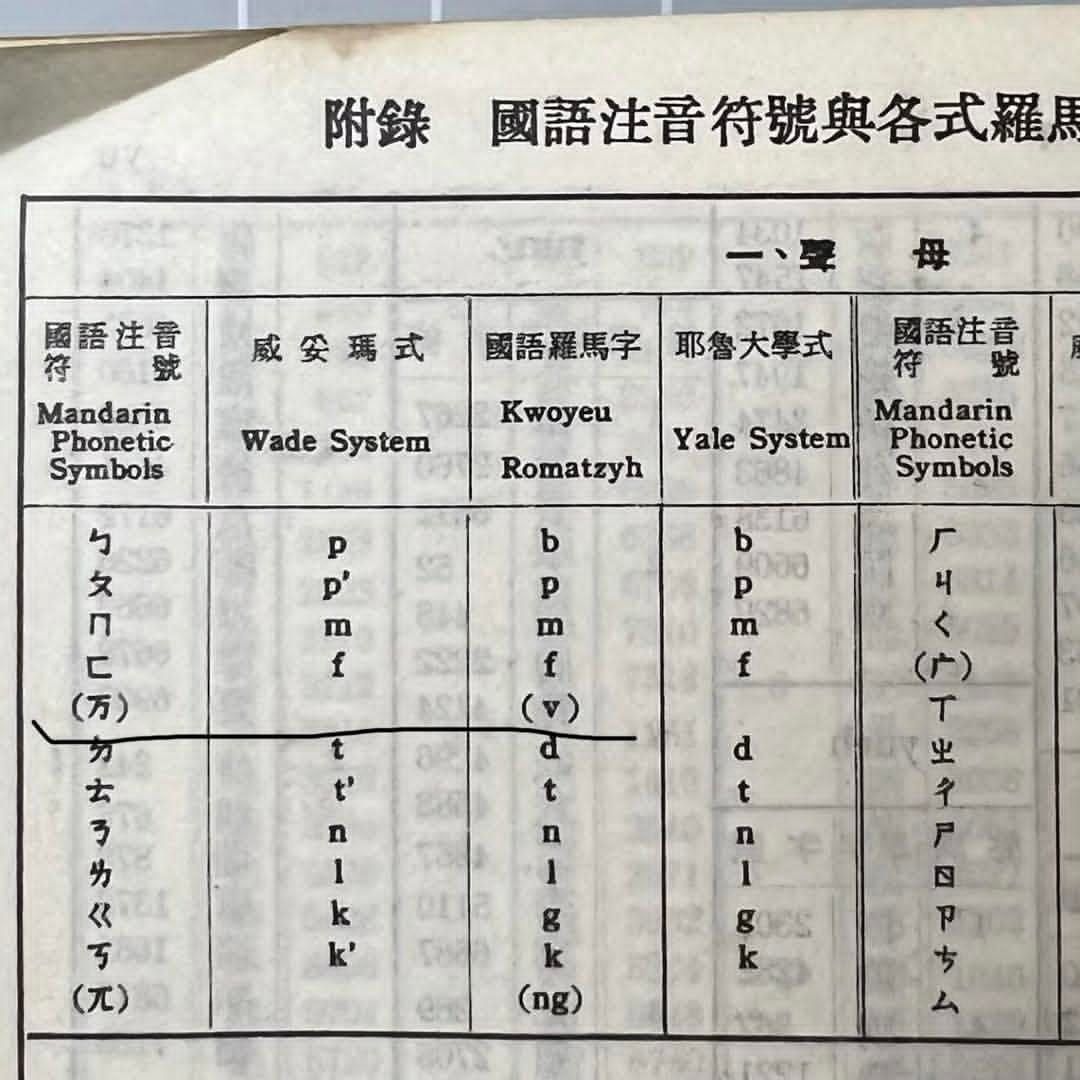 附錄　國語注音符號與各式羅馬
一、聲　母
國語注音符號 威妥瑪式 國語羅馬字 耶魯大學式 國語注音符號
Mandarin Phonetic Symbols Wade System Kwoyeu Romatzyh Yale System Mandarin Phonetic Symbols
ㄅ p b b ㄏ
ㄆ p' p p ㄐ
ㄇ m m m ㄑ
ㄈ f f f (ㄬ)
(万) (v) ㄒ
ㄉ t d d ㄓ
ㄊ t' t t ㄔ
ㄋ n n n ㄕ
ㄌ l l l ㄖ
ㄍ k g g ㄗ
ㄎ k' k k ㄘ
(兀) (ng) ㄙ